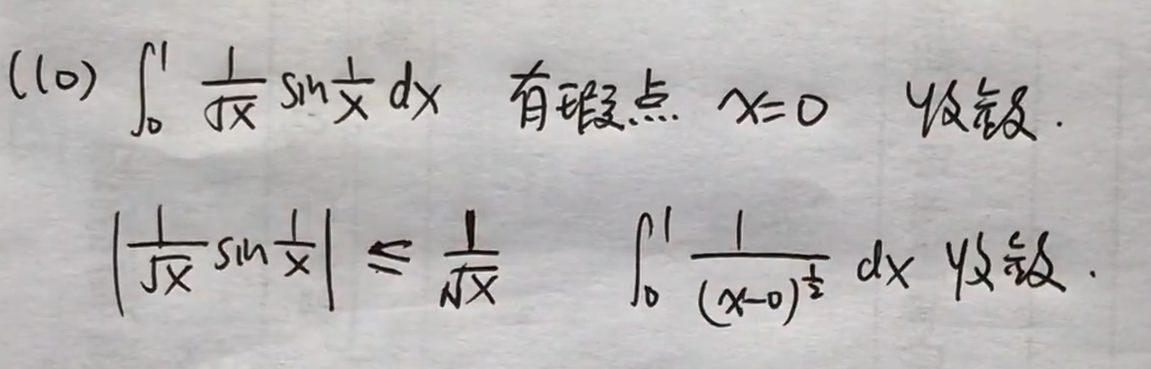 (10) ∫₀¹ 1/√x sin 1/x dx 有瑕点 x=0 收敛.
|1/√x sin 1/x| ≤ 1/√x ∫₀¹ 1/(x-0)^(1/2) dx 收敛.